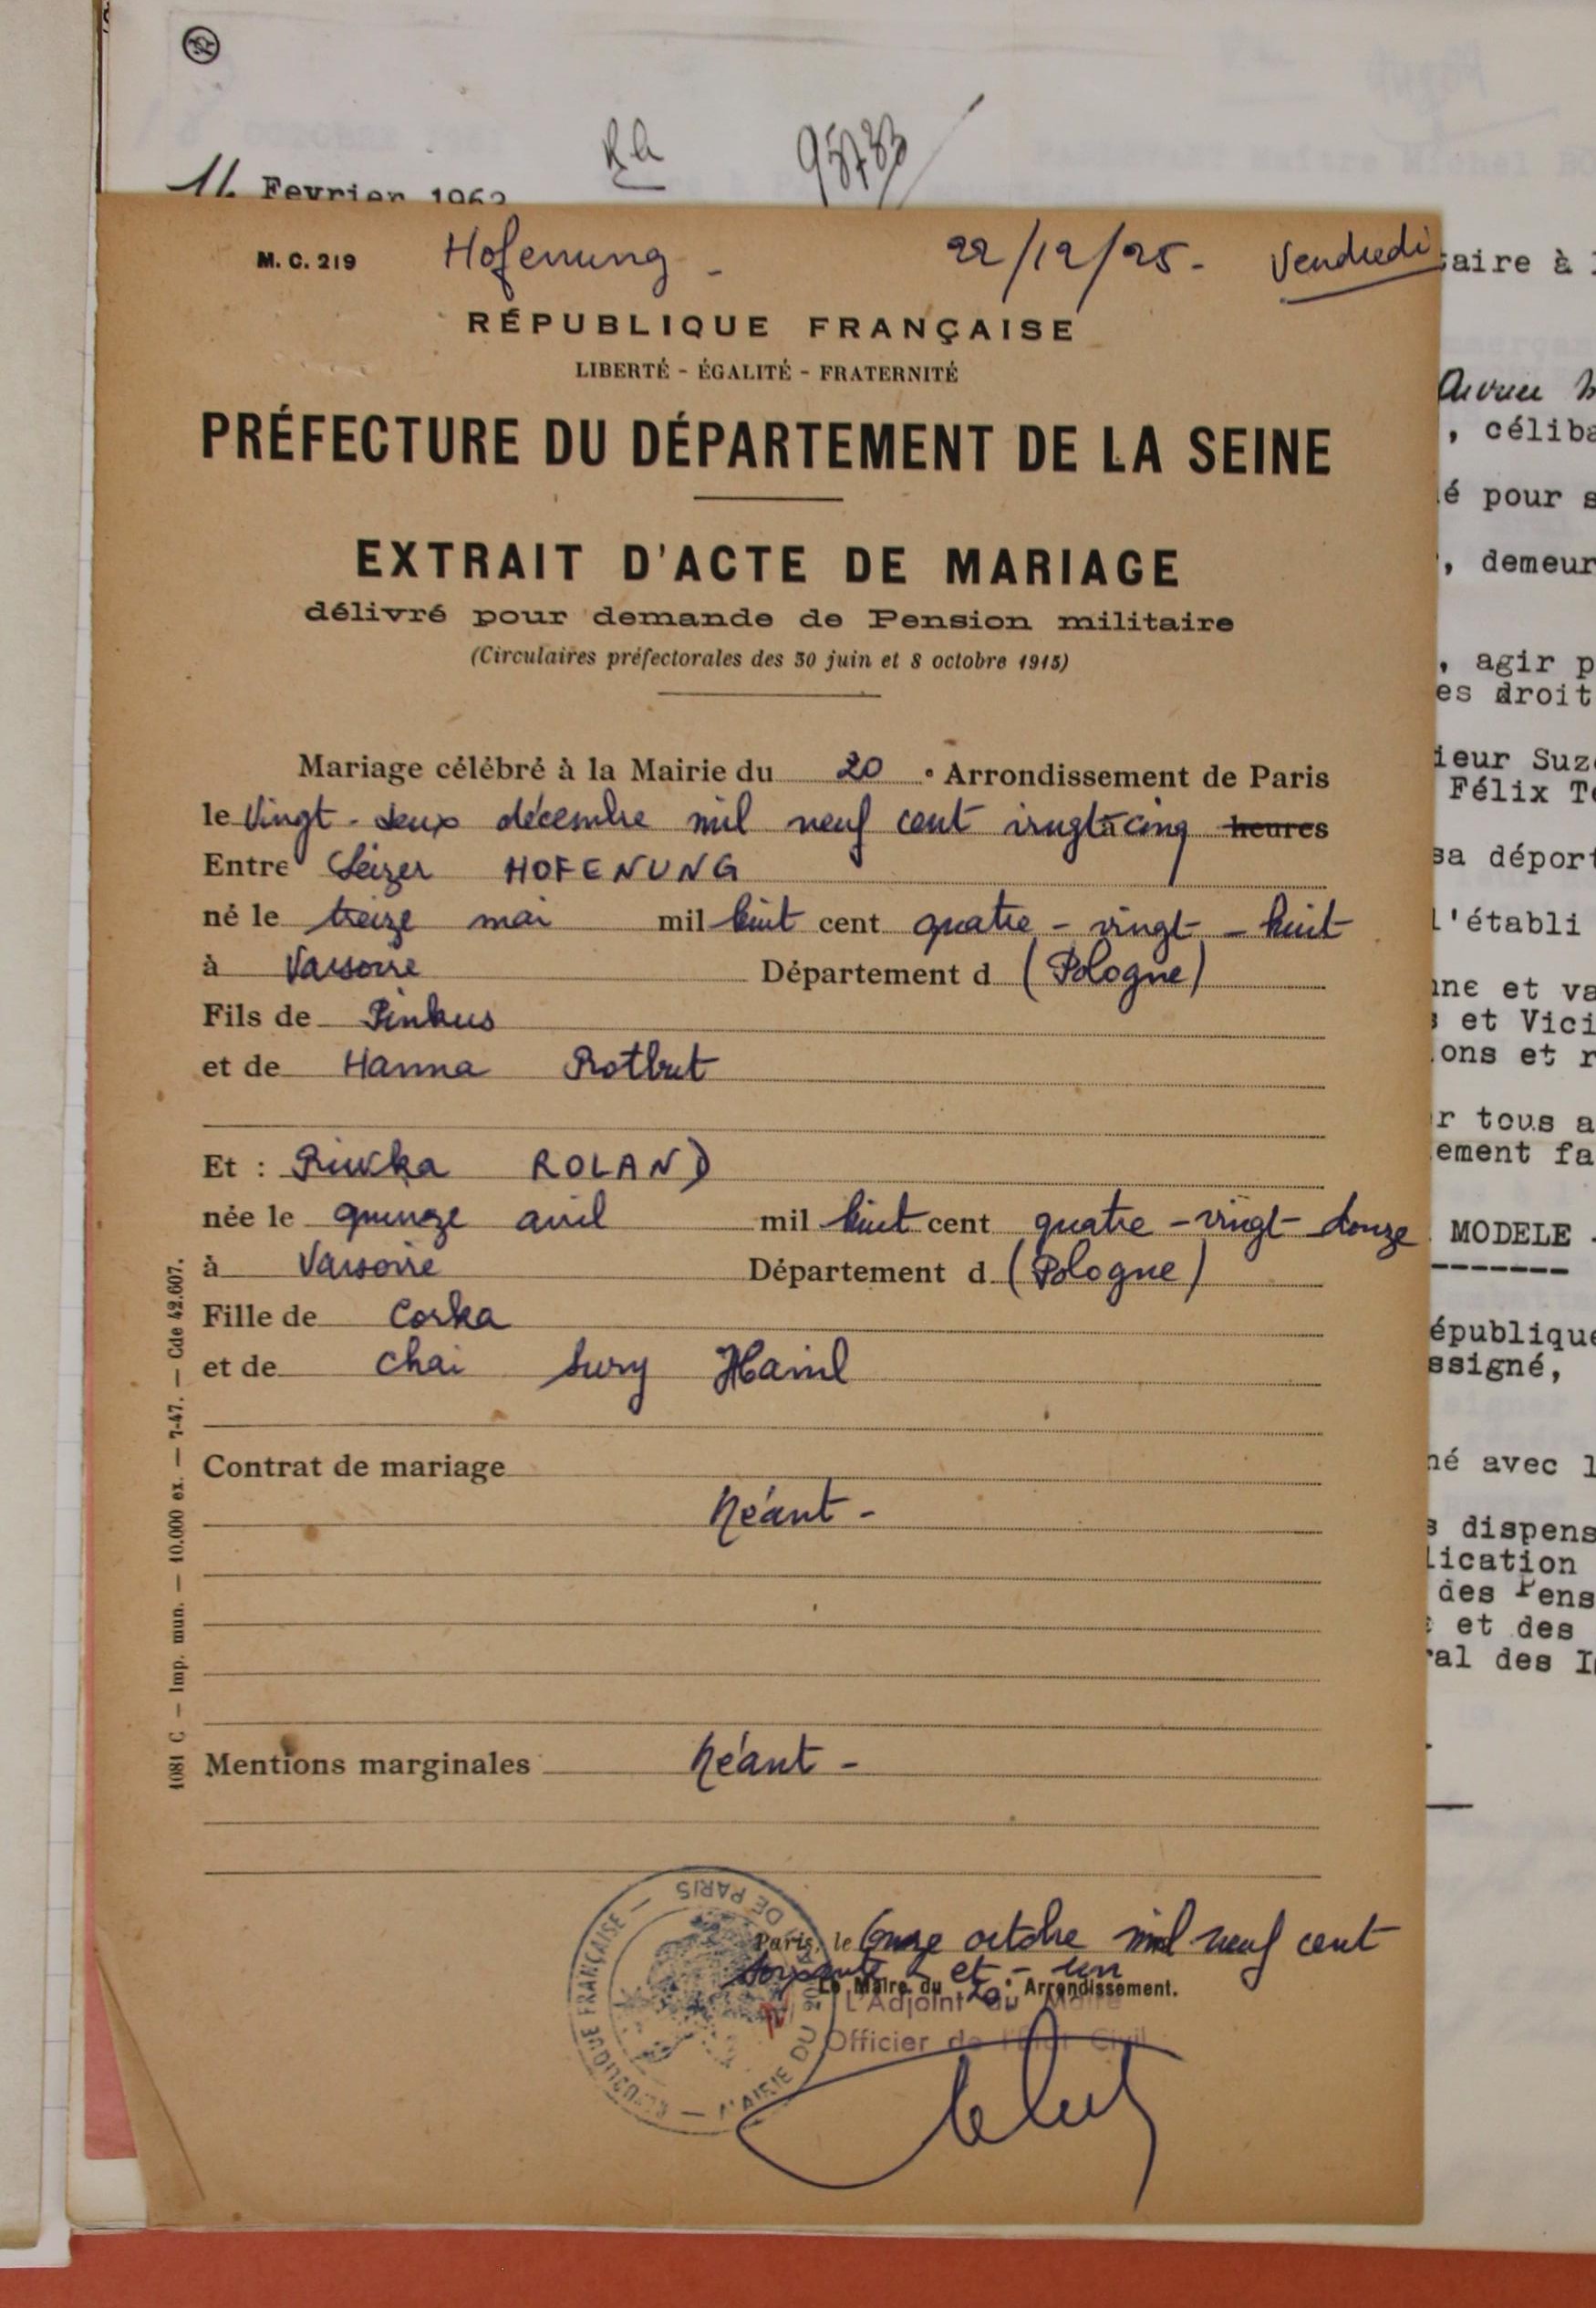 Ra 98783
14 Fevrier 1962
M. C. 219 Hofenung - 22/12/25. Vendredi
RÉPUBLIQUE FRANÇAISE
LIBERTÉ - ÉGALITÉ - FRATERNITÉ
PRÉFECTURE DU DÉPARTEMENT DE LA SEINE
EXTRAIT D'ACTE DE MARIAGE
délivré pour demande de Pension militaire
(Circulaires préfectorales des 30 juin et 8 octobre 1915)
Mariage célébré à la Mairie du 20 e Arrondissement de Paris
le Vingt-deux décembre mil neuf cent vingt à cinq heures
Entre Leizer HOFENUNG
né le treize mai mil huit cent quatre-vingt-huit
à Varsovie Département d (Pologne)
Fils de Pinkus
et de Hanna Rotbut
Et : Riwka ROLAND
née le quinze avril mil huit cent quatre-vingt-douze
à Varsovie Département d (Pologne)
Fille de Corka
et de Chai Sury
Contrat de mariage
Néant -
Mentions marginales Néant -
Paris, le Onze octobre mil neuf cent
soixante et - un
Le Maire du 20e Arrondissement.
L'Adjoint au Maire
Officier de l'État Civil
RÉPUBLIQUE FRANÇAISE - MAIRIE DU DE PARIS
1081 C - Imp. mun. - 10.000 ex. - 7-47. - Cde 42.607.
aire à
, céliba
é pour s
, demeur
, agir p
es droit
ieur Suz
Félix Te
sa déport
l'établi
nne et va
et Vici
ons et r
r tous a
ement fa
MODELE
épublique
ssigné,
né avec l
s dispens
lication
des Pens
et des
al des In